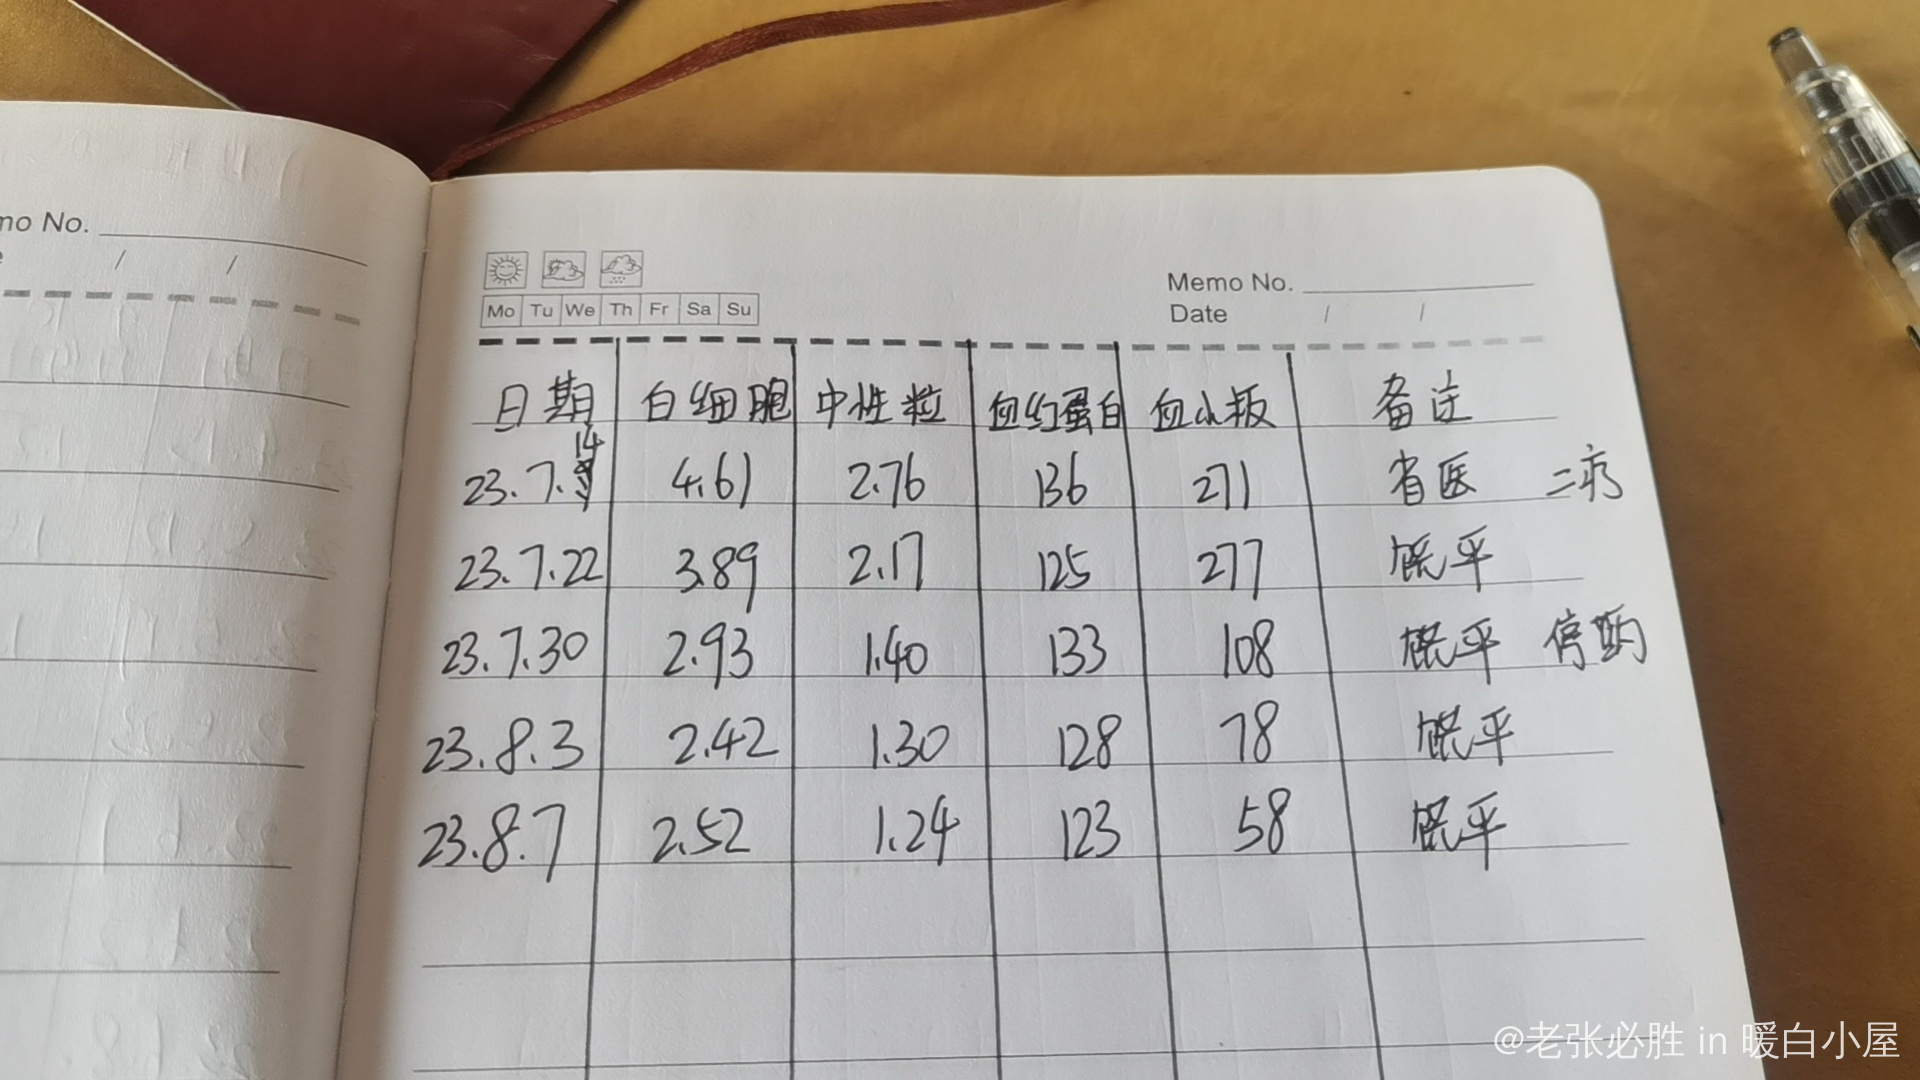 mo No.
/ /
Mo Tu We Th Fr Sa Su
Memo No.
Date / /
日期 白细胞 中性粒 血红蛋白 血小板 备注
23.7.14 4.61 2.76 136 271 省医 二疗
23.7.22 3.89 2.17 125 277 平
23.7.30 2.93 1.40 133 108 平 停药
23.8.3 2.42 1.30 128 78 平
23.8.7 2.52 1.24 123 58 平
@老张必胜 in 暖白小屋